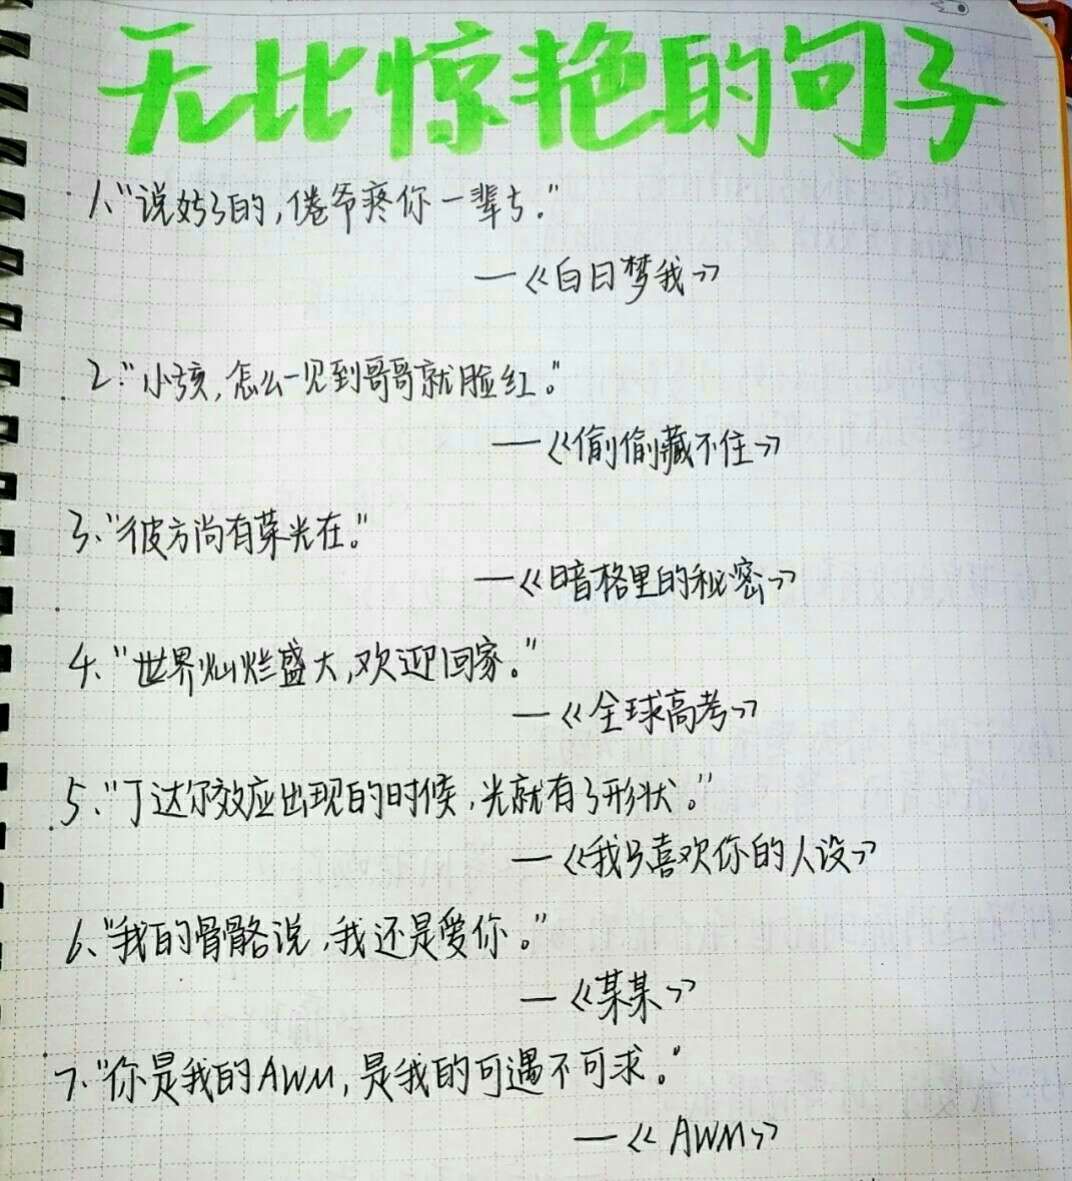 无比惊艳的句子
1、“说好了的，倦爷疼你一辈子。”
—《白日梦我》
2、“小孩，怎么一见到哥哥就脸红。”
—《偷偷藏不住》
3、“彼方尚有荣光在。”
—《暗格里的秘密》
4、“世界灿烂盛大，欢迎回家。”
—《全球高考》
5、“丁达尔效应出现的时候，光就有了形状。”
—《我只喜欢你的人设》
6、“我的骨骼说，我还是爱你。”
—《某某》
7、“你是我的AWM，是我的可遇不可求。”
—《AWM》